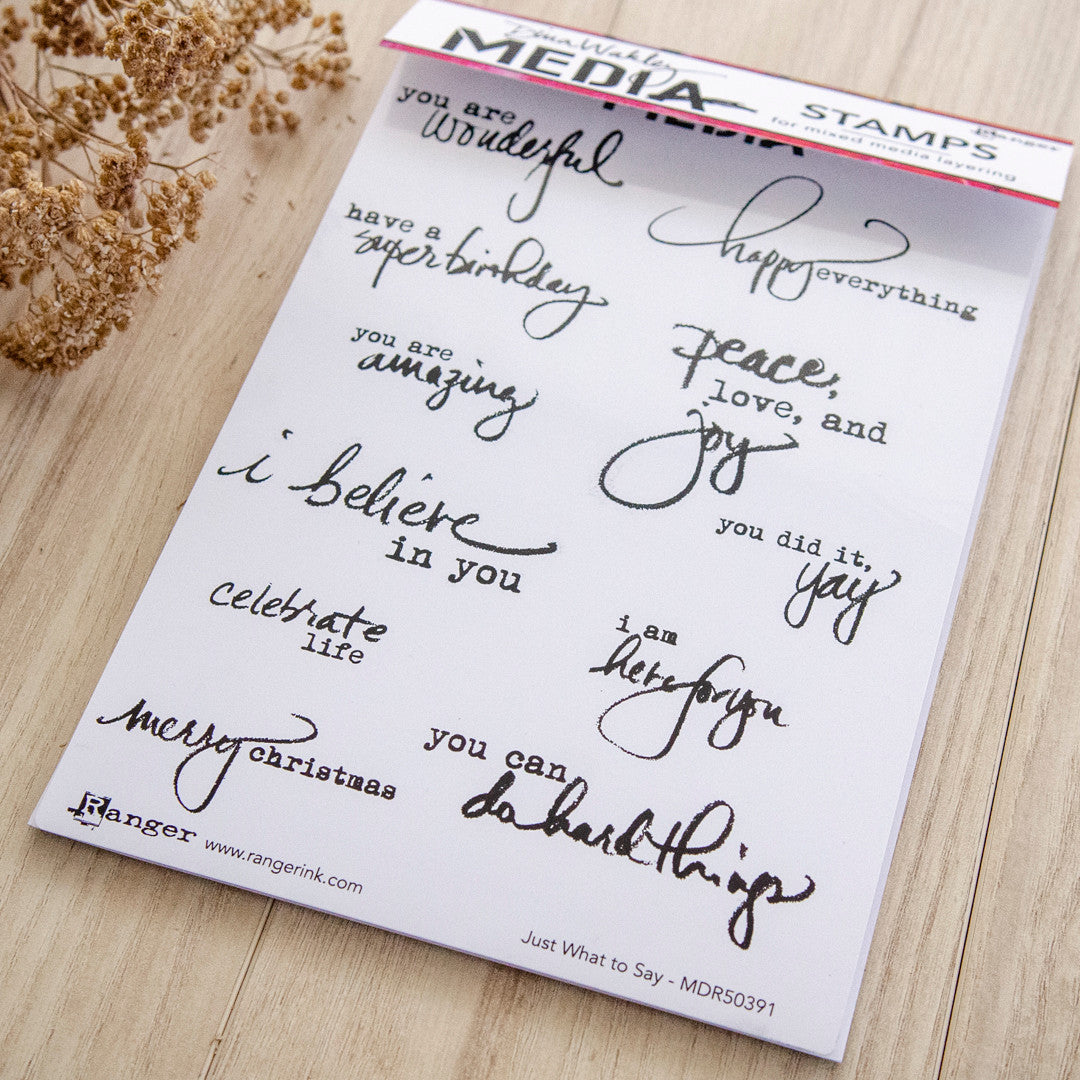 Dina Wakley
MEDIA
STAMPS
Ranger
for mixed media layering
MEDIA
you are
wonderful
happy everything
have a
super birthday
you are
amazing
peace,
love, and
joy
i believe
in you
you did it,
yay
celebrate
life
i am
here for you
merry christmas
you can
do hard things
Ranger www.rangerink.com
Just What to Say - MDR50391